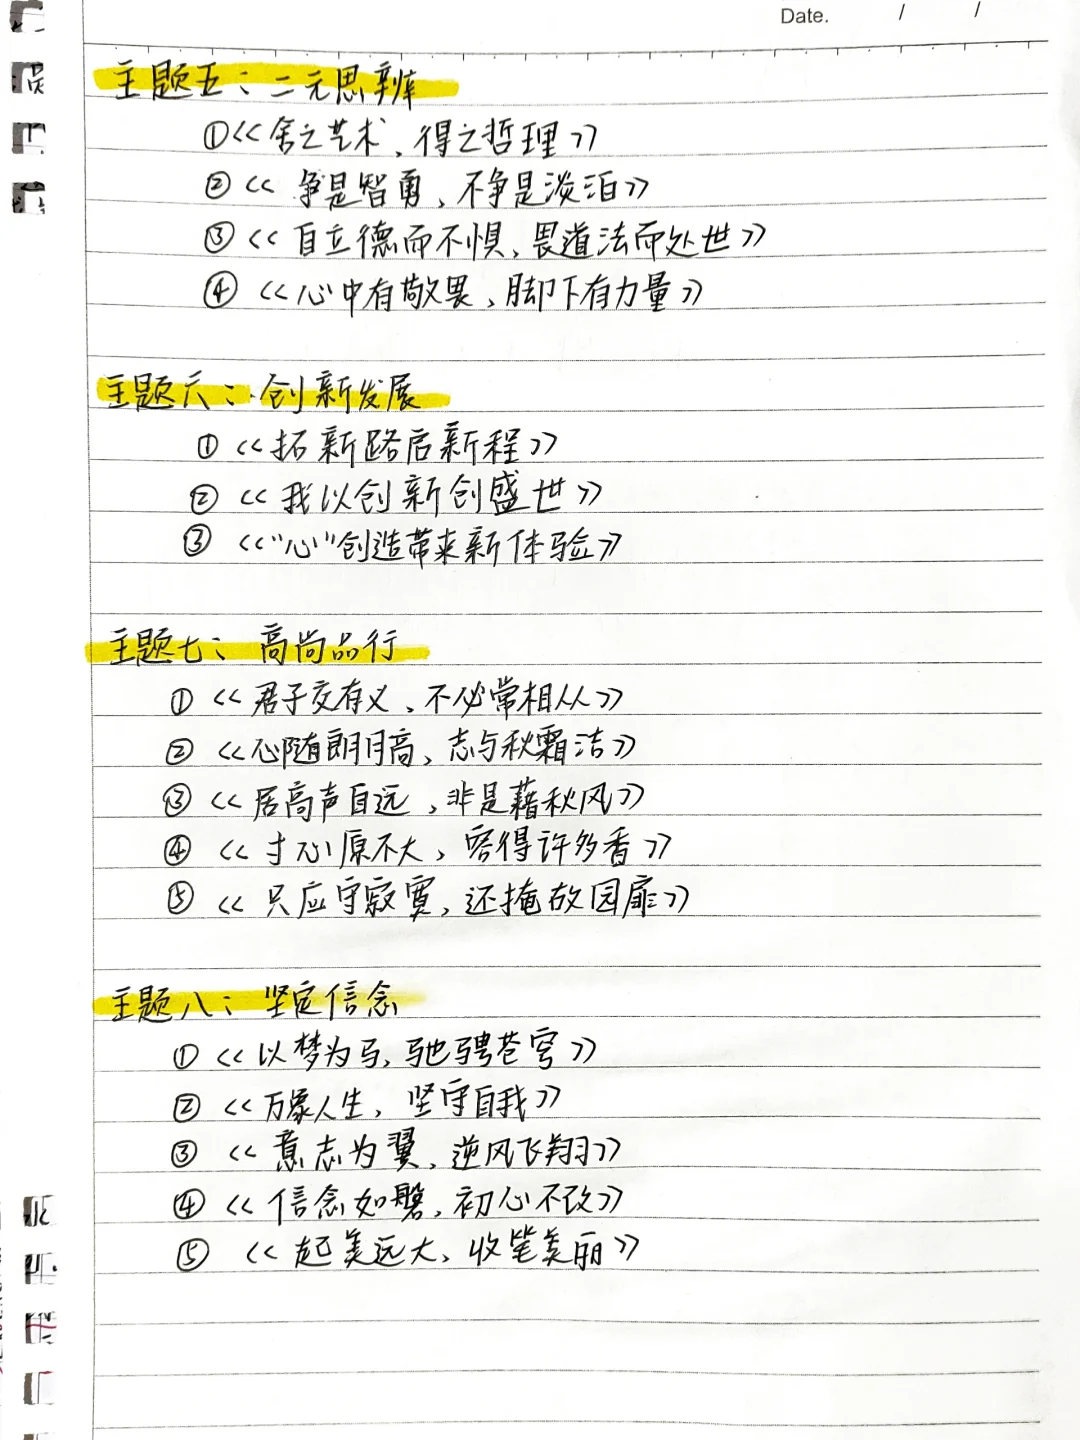 Date. / /
主题五：二元思辨
①《舍之艺术，得之哲理》
②《争是智勇，不争是淡泊》
③《自立德而不惧，畏道法而处世》
④《心中有敬畏，脚下有力量》
主题六：创新发展
①《拓新路启新程》
②《我以创新创盛世》
③《“心”创造带来新体验》
主题七：高尚品行
①《君子交有义，不必常相从》
②《心随朗月高，志与秋霜洁》
③《居高声自远，非是藉秋风》
④《寸心原不大，容得许多香》
⑤《只应守寂寞，还掩故园扉》
主题八：坚定信念
①《以梦为马，驰骋苍穹》
②《万象人生，坚守自我》
③《意志为翼，逆风飞翔》
④《信念如磐，初心不改》
⑤《起美远大，收笔美丽》